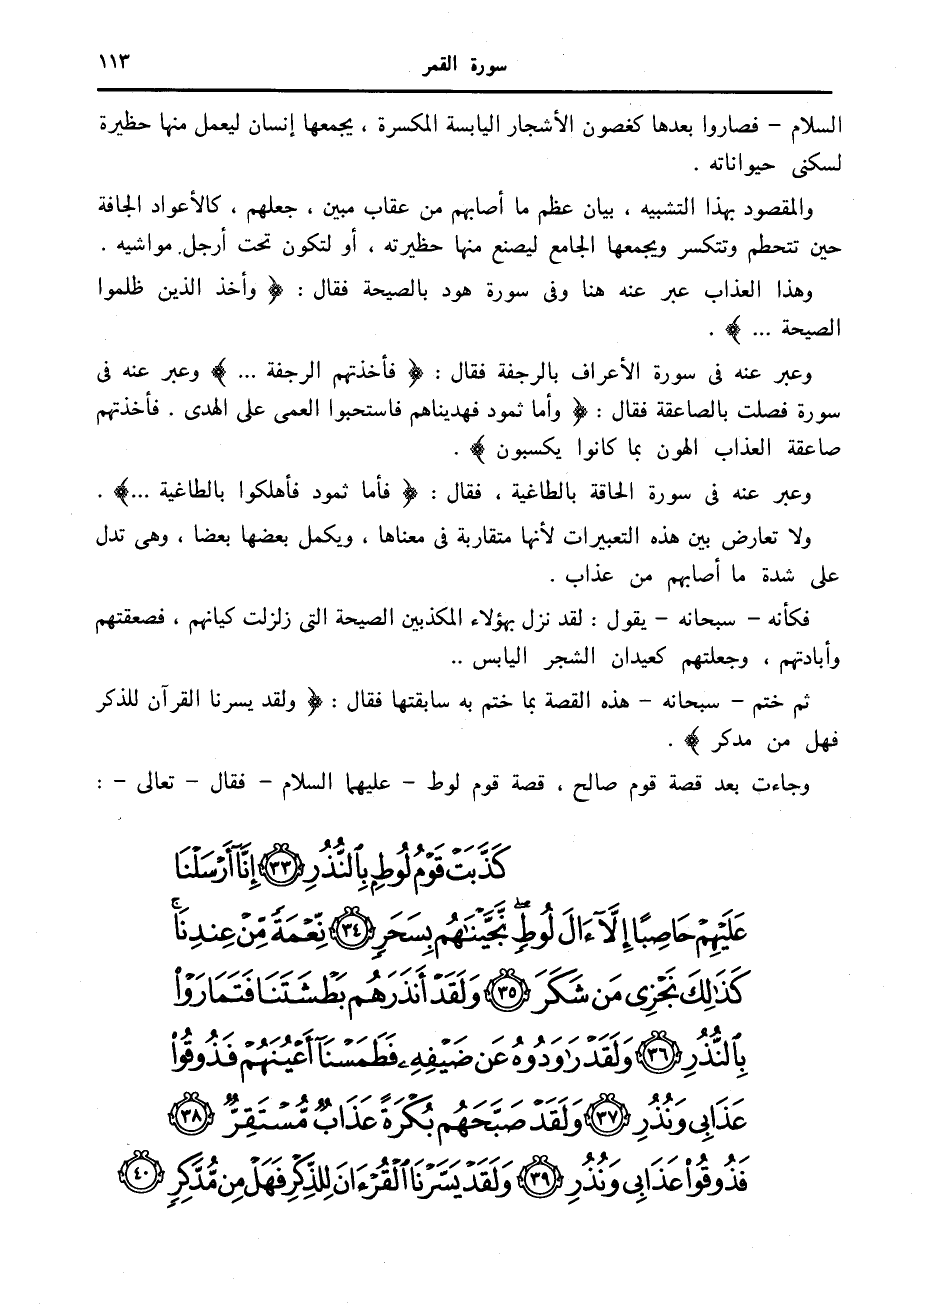 سورة القمر ١١٣
السلام – فصاروا بعدها كغصون الأشجار اليابسة المكسرة ، يجمعها إنسان ليعمل منها حظيرة
لسكنى حيواناته .
والمقصود بهذا التشبيه ، بيان عظم ما أصابهم من عقاب مبين ، جعلهم ، كالأعواد الجافة
حين تتحطم وتتكسر ويجمعها الجامع ليصنع منها حظيرته ، أو لتكون تحت أرجل مواشيه .
وهذا العذاب عبر عنه هنا وفى سورة هود بالصيحة فقال : ﴿ وأخذ الذين ظلموا
الصيحة ... ﴾ .
وعبر عنه فى سورة الأعراف بالرجفة فقال : ﴿ فأخذتهم الرجفة ... ﴾ وعبر عنه فى
سورة فصلت بالصاعقة فقال : ﴿ وأما ثمود فهديناهم فاستحبوا العمى على الهدى . فأخذتهم
صاعقة العذاب الهون بما كانوا يكسبون ﴾ .
وعبر عنه فى سورة الحاقة بالطاغية ، فقال : ﴿ فأما ثمود فأهلكوا بالطاغية ...﴾ .
ولا تعارض بين هذه التعبيرات لأنها متقاربة فى معناها ، ويكمل بعضها بعضا ، وهى تدل
على شدة ما أصابهم من عذاب .
فكأنه – سبحانه – يقول : لقد نزل بهؤلاء المكذبين الصيحة التى زلزلت كيانهم ، فصعقتهم
وأبادتهم ، وجعلتهم كعيدان الشجر اليابس ..
ثم ختم – سبحانه – هذه القصة بما ختم به سابقتها فقال : ﴿ ولقد يسرنا القرآن للذكر
فهل من مدكر ﴾ .
وجاءت بعد قصة قوم صالح ، قصة قوم لوط – عليهما السلام – فقال – تعالى – :
كَذَّبَتْ قَوْمُ لُوطٍ بِالنُّذُرِ ٣٣ إِنَّا أَرْسَلْنَا
عَلَيْهِمْ حَاصِبًا إِلَّا ءَالَ لُوطٍ ۖ نَّجَّيْنَٰهُم بِسَحَرٍ ٣٤ نِّعْمَةً مِّنْ عِندِنَا ۚ
كَذَٰلِكَ نَجْزِى مَن شَكَرَ ٣٥ وَلَقَدْ أَنذَرَهُم بَطْشَتَنَا فَتَمَارَوْا۟
بِٱلنُّذُرِ ٣٦ وَلَقَدْ رَٰوَدُوهُ عَن ضَيْفِهِۦ فَطَمَسْنَآ أَعْيُنَهُمْ فَذُوقُوا۟
عَذَابِى وَنُذُرِ ٣٧ وَلَقَدْ صَبَّحَهُم بُكْرَةً عَذَابٌ مُّسْتَقِرٌّ ٣٨
فَذُوقُوا۟ عَذَابِى وَنُذُرِ ٣٩ وَلَقَدْ يَسَّرْنَا ٱلْقُرْءَانَ لِلذِّكْرِ فَهَلْ مِن مُّدَّكِرٍ ٤٠